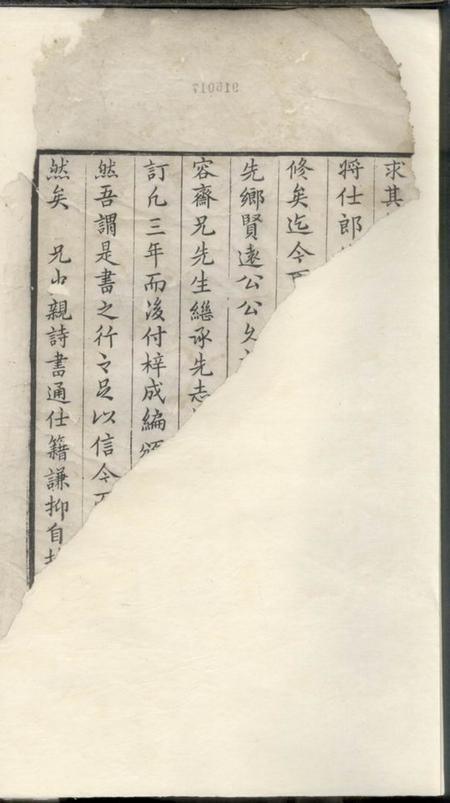 求其
將仕郎
修矣迄今
先鄉賢遠公公久
容齋兄先生繼承先志
訂凡三年而後付梓成編
然吾謂是書之行之足以信今
然矣 兄少親詩書通仕籍謙抑自
916017